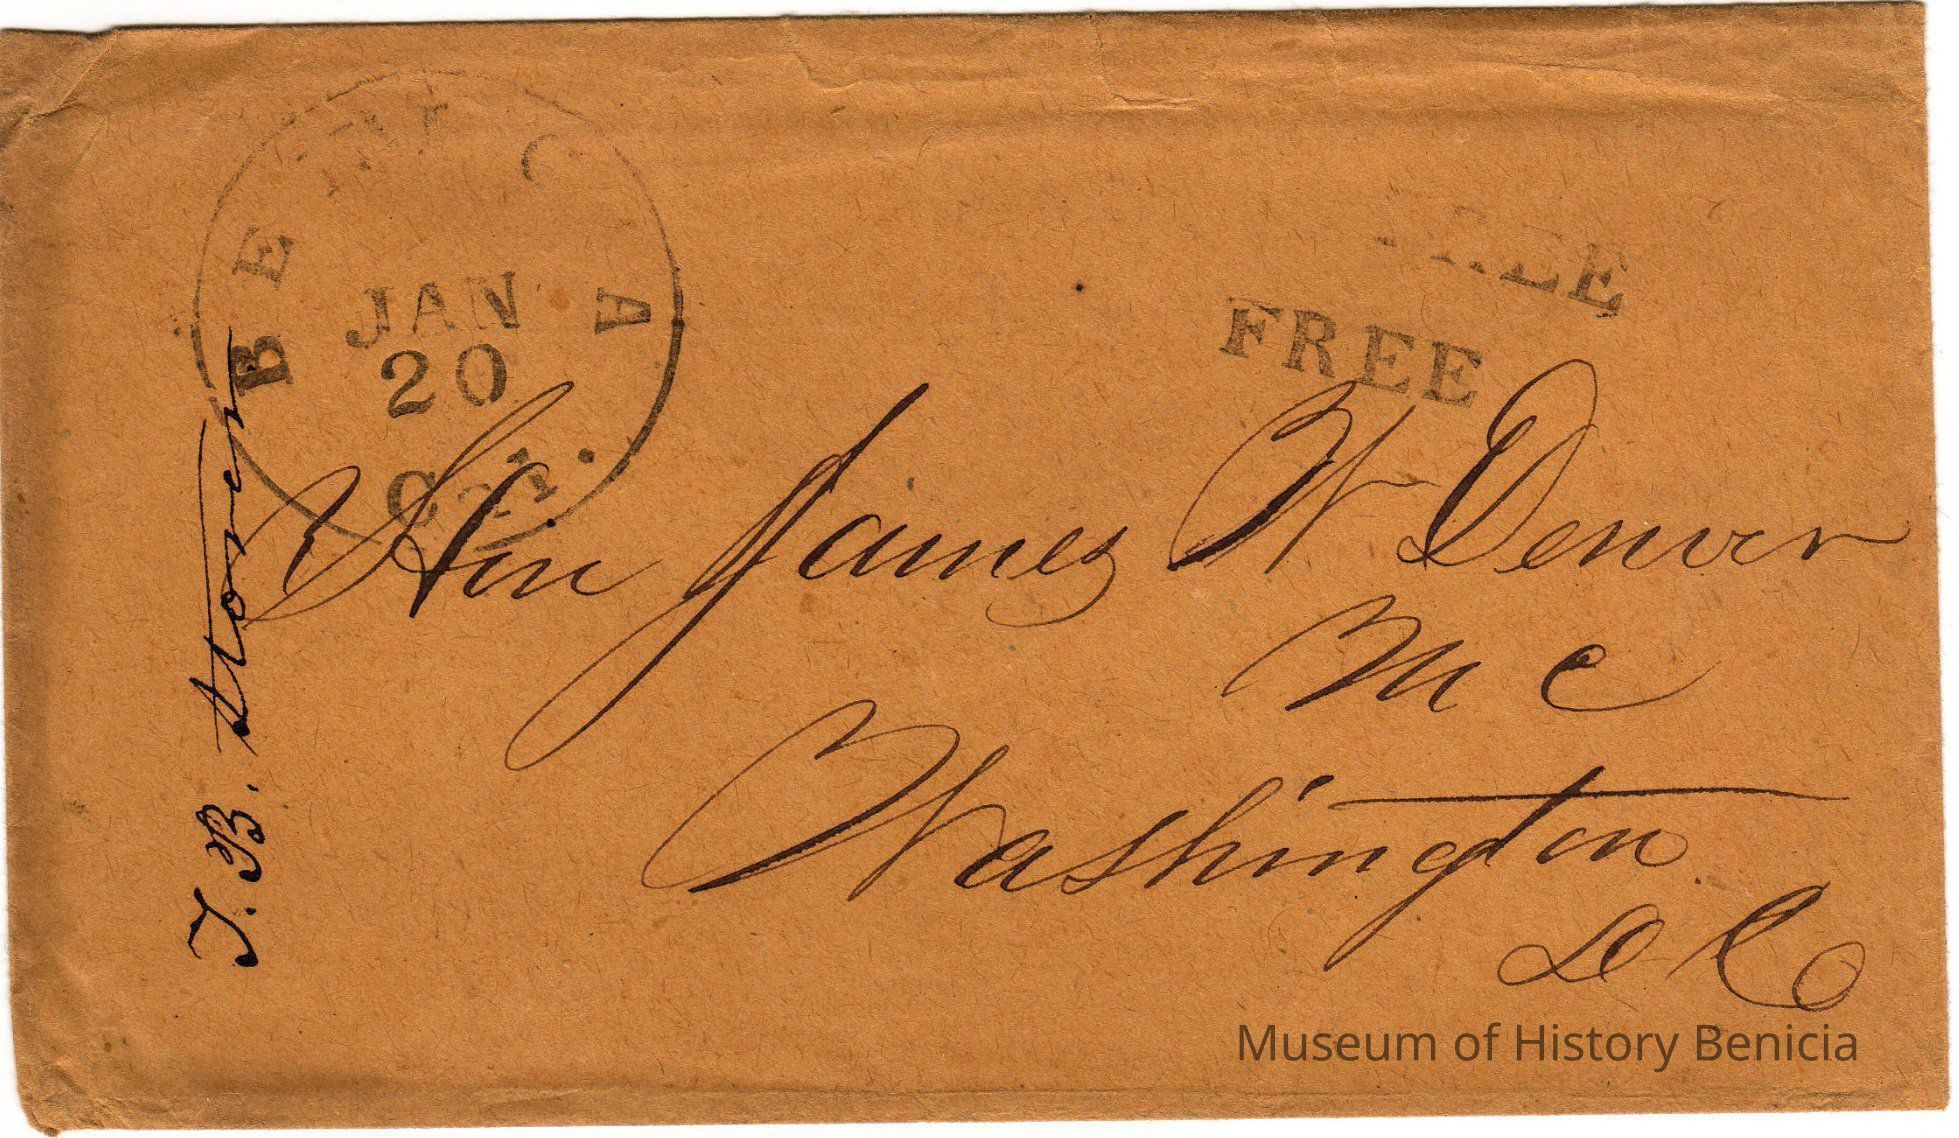 BENICIA
JAN
20
Cal.
FREE
FREE
Hon James W Denver
M C
Washington
D C
T. B. Storer
Museum of History Benicia